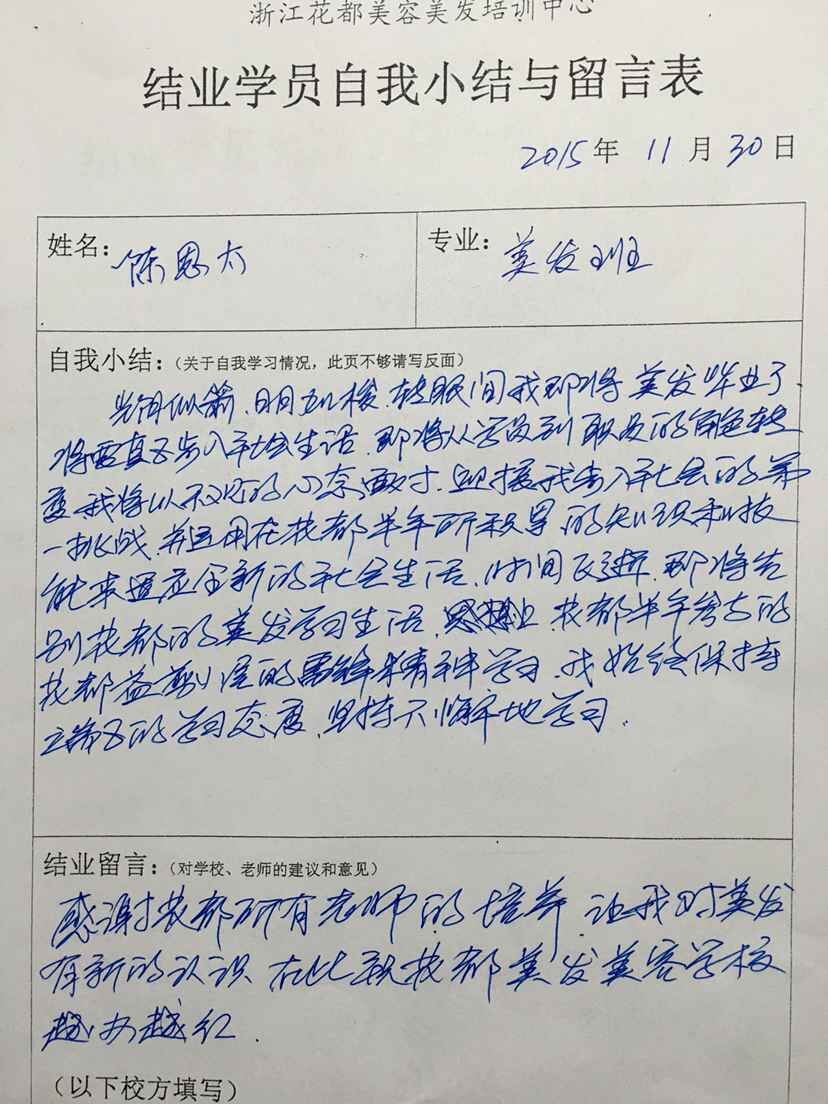 浙江花都美容美发培训中心
结业学员自我小结与留言表
2015年 11月30日
姓名：陈恩太
专业：美发班
自我小结：（关于自我学习情况，此页不够请写反面）
光阴似箭，日月如梭，转眼间我即将美发毕业了
将要真正步入社会生活，即将从学员到职员的角色转
变，我将以不败的心态面对，迎接我步入社会的第
一挑战，并运用在花都半年所积累的知识和技
能来适应全新的社会生活，时间飞逝，即将告
别花都的美发学习生活，思想上，花都半年参与的
花都益剪 的雷锋精神学习，我始终保持
端正的学习态度，坚持不懈地学习．
结业留言：（对学校、老师的建议和意见）
感谢花都所有老师的培养，让我对美发
有新的认识，在此祝花都美发美容学校
越办越红．
（以下校方填写）